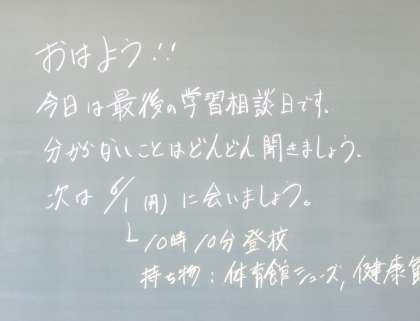 おはよう!!
今日は最後の学習相談日です.
分からないことはどんどん聞きましょう.
次は6/1(月)に会いましょう。
└10時10分登校
持ち物:体育館シューズ,健康